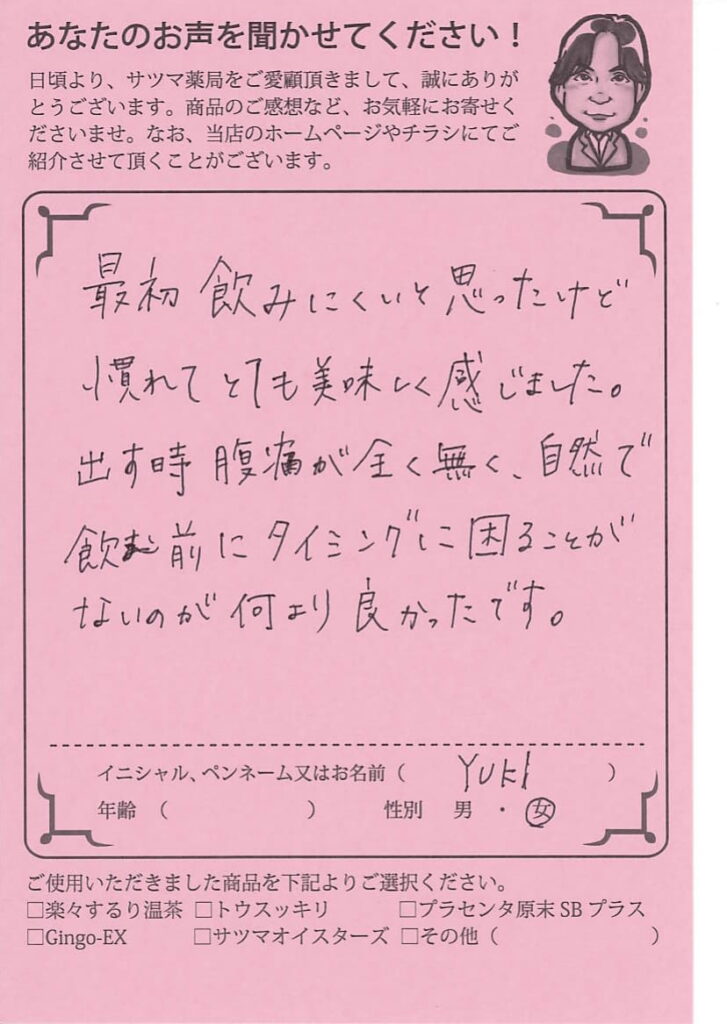 あなたのお声を聞かせてください！
日頃より、サツマ薬局をご愛顧頂きまして、誠にありが
とうございます。商品のご感想など、お気軽にお寄せく
ださいませ。なお、当店のホームページやチラシにてご
紹介させて頂くことがございます。
最初飲みにくいと思ったけど
慣れてとても美味しく感じました。
出す時腹痛が全く無く、自然で
飲む前にタイミングに困ることが
ないのが何より良かったです。
イニシャル、ペンネーム又はお名前（ YUKI ）
年齢 （ ） 性別 男 ・ 女
ご使用いただきました商品を下記よりご選択ください。
□楽々するり温茶 □トウスッキリ □プラセンタ原末 SB プラス
□Gingo-EX □サツマオイスターズ □その他（ ）